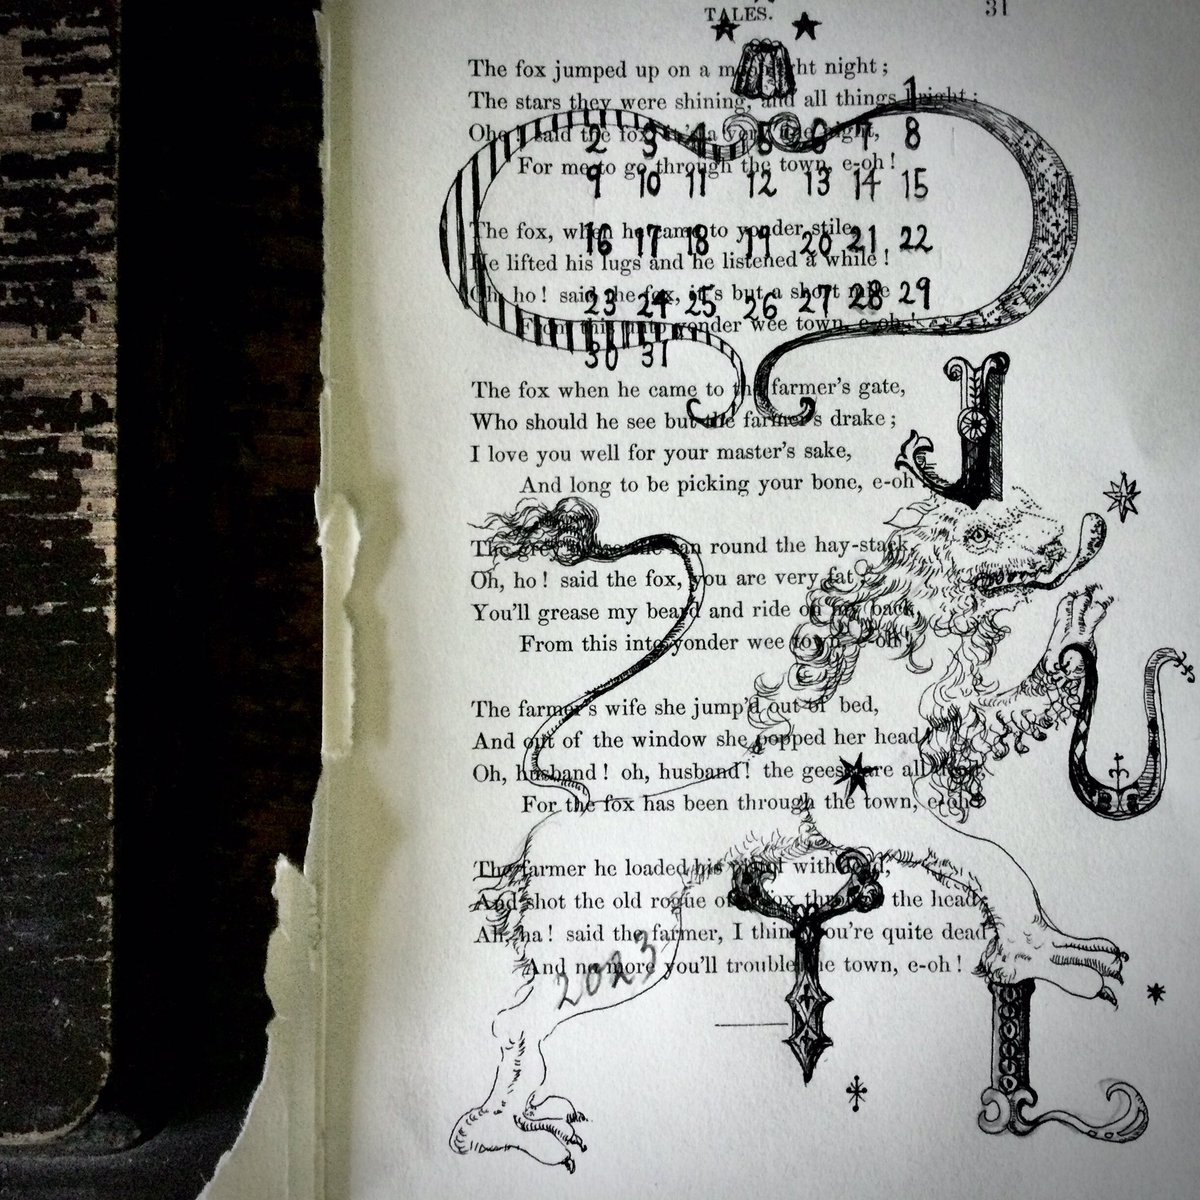 TALES.
31
The fox jumped up on a moonlight night;
The stars they were shining, and all things bright;
Oh, ho! said the fox, it's a very fine night,
For me to go through the town, e-oh!
1
2 3 4 5 6 7 8
9 10 11 12 13 14 15
The fox, when he came to yonder stile,
16 17 18 19 20 21 22
He lifted his lugs and he listened a while!
Oh, ho! said the fox, it's but a short mile
23 24 25 26 27 28 29
From this unto yonder wee town, e-oh!
30 31
The fox when he came to the farmer's gate,
Who should he see but the farmer's drake;
I love you well for your master's sake,
And long to be picking your bone, e-oh!
J
The grey goose she ran round the hay-stack,
Oh, ho! said the fox, you are very fat;
You'll grease my beard and ride on my back,
From this into yonder wee town, e-oh!
U
The farmer's wife she jump'd out of bed,
And out of the window she popped her head!
Oh, husband! oh, husband! the geese are all dead,
For the fox has been through the town, e-oh!
The farmer he loaded his pistol with lead,
And shot the old rogue of a fox through the head;
Ah, ha! said the farmer, I think you're quite dead
And no more you'll trouble the town, e-oh!
2023
Y
L